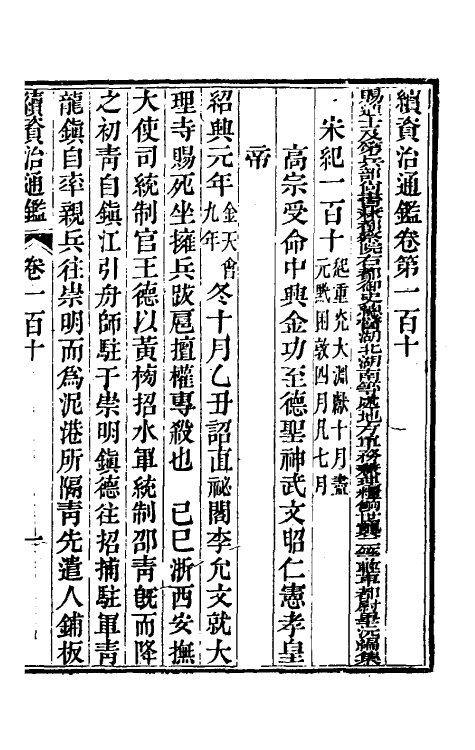 續資治通鑑卷第一百十
賜進士及第兵部尚書兼都察院右都御史總督湖北湖南等處地方軍務兼理糧餉世襲二等輕車都尉畢沅編集
宋紀一百十起重光大淵獻十月盡元黓困敦四月凡七月
高宗受命中興全功至德聖神武文昭仁憲孝皇
帝
紹興元年金天會九年冬十月乙丑詔直祕閣李允文就大
理寺賜死坐擁兵跋扈擅權專殺也 己巳浙西安撫
大使司統制官王德以黃榜招水軍統制邵青既而降
之初青自鎮江引舟師駐于崇明鎮德往招捕駐軍青
龍鎮自率親兵往崇明而爲泥港所隔青先遣人鋪板
續資治通鑑 卷一百十 一